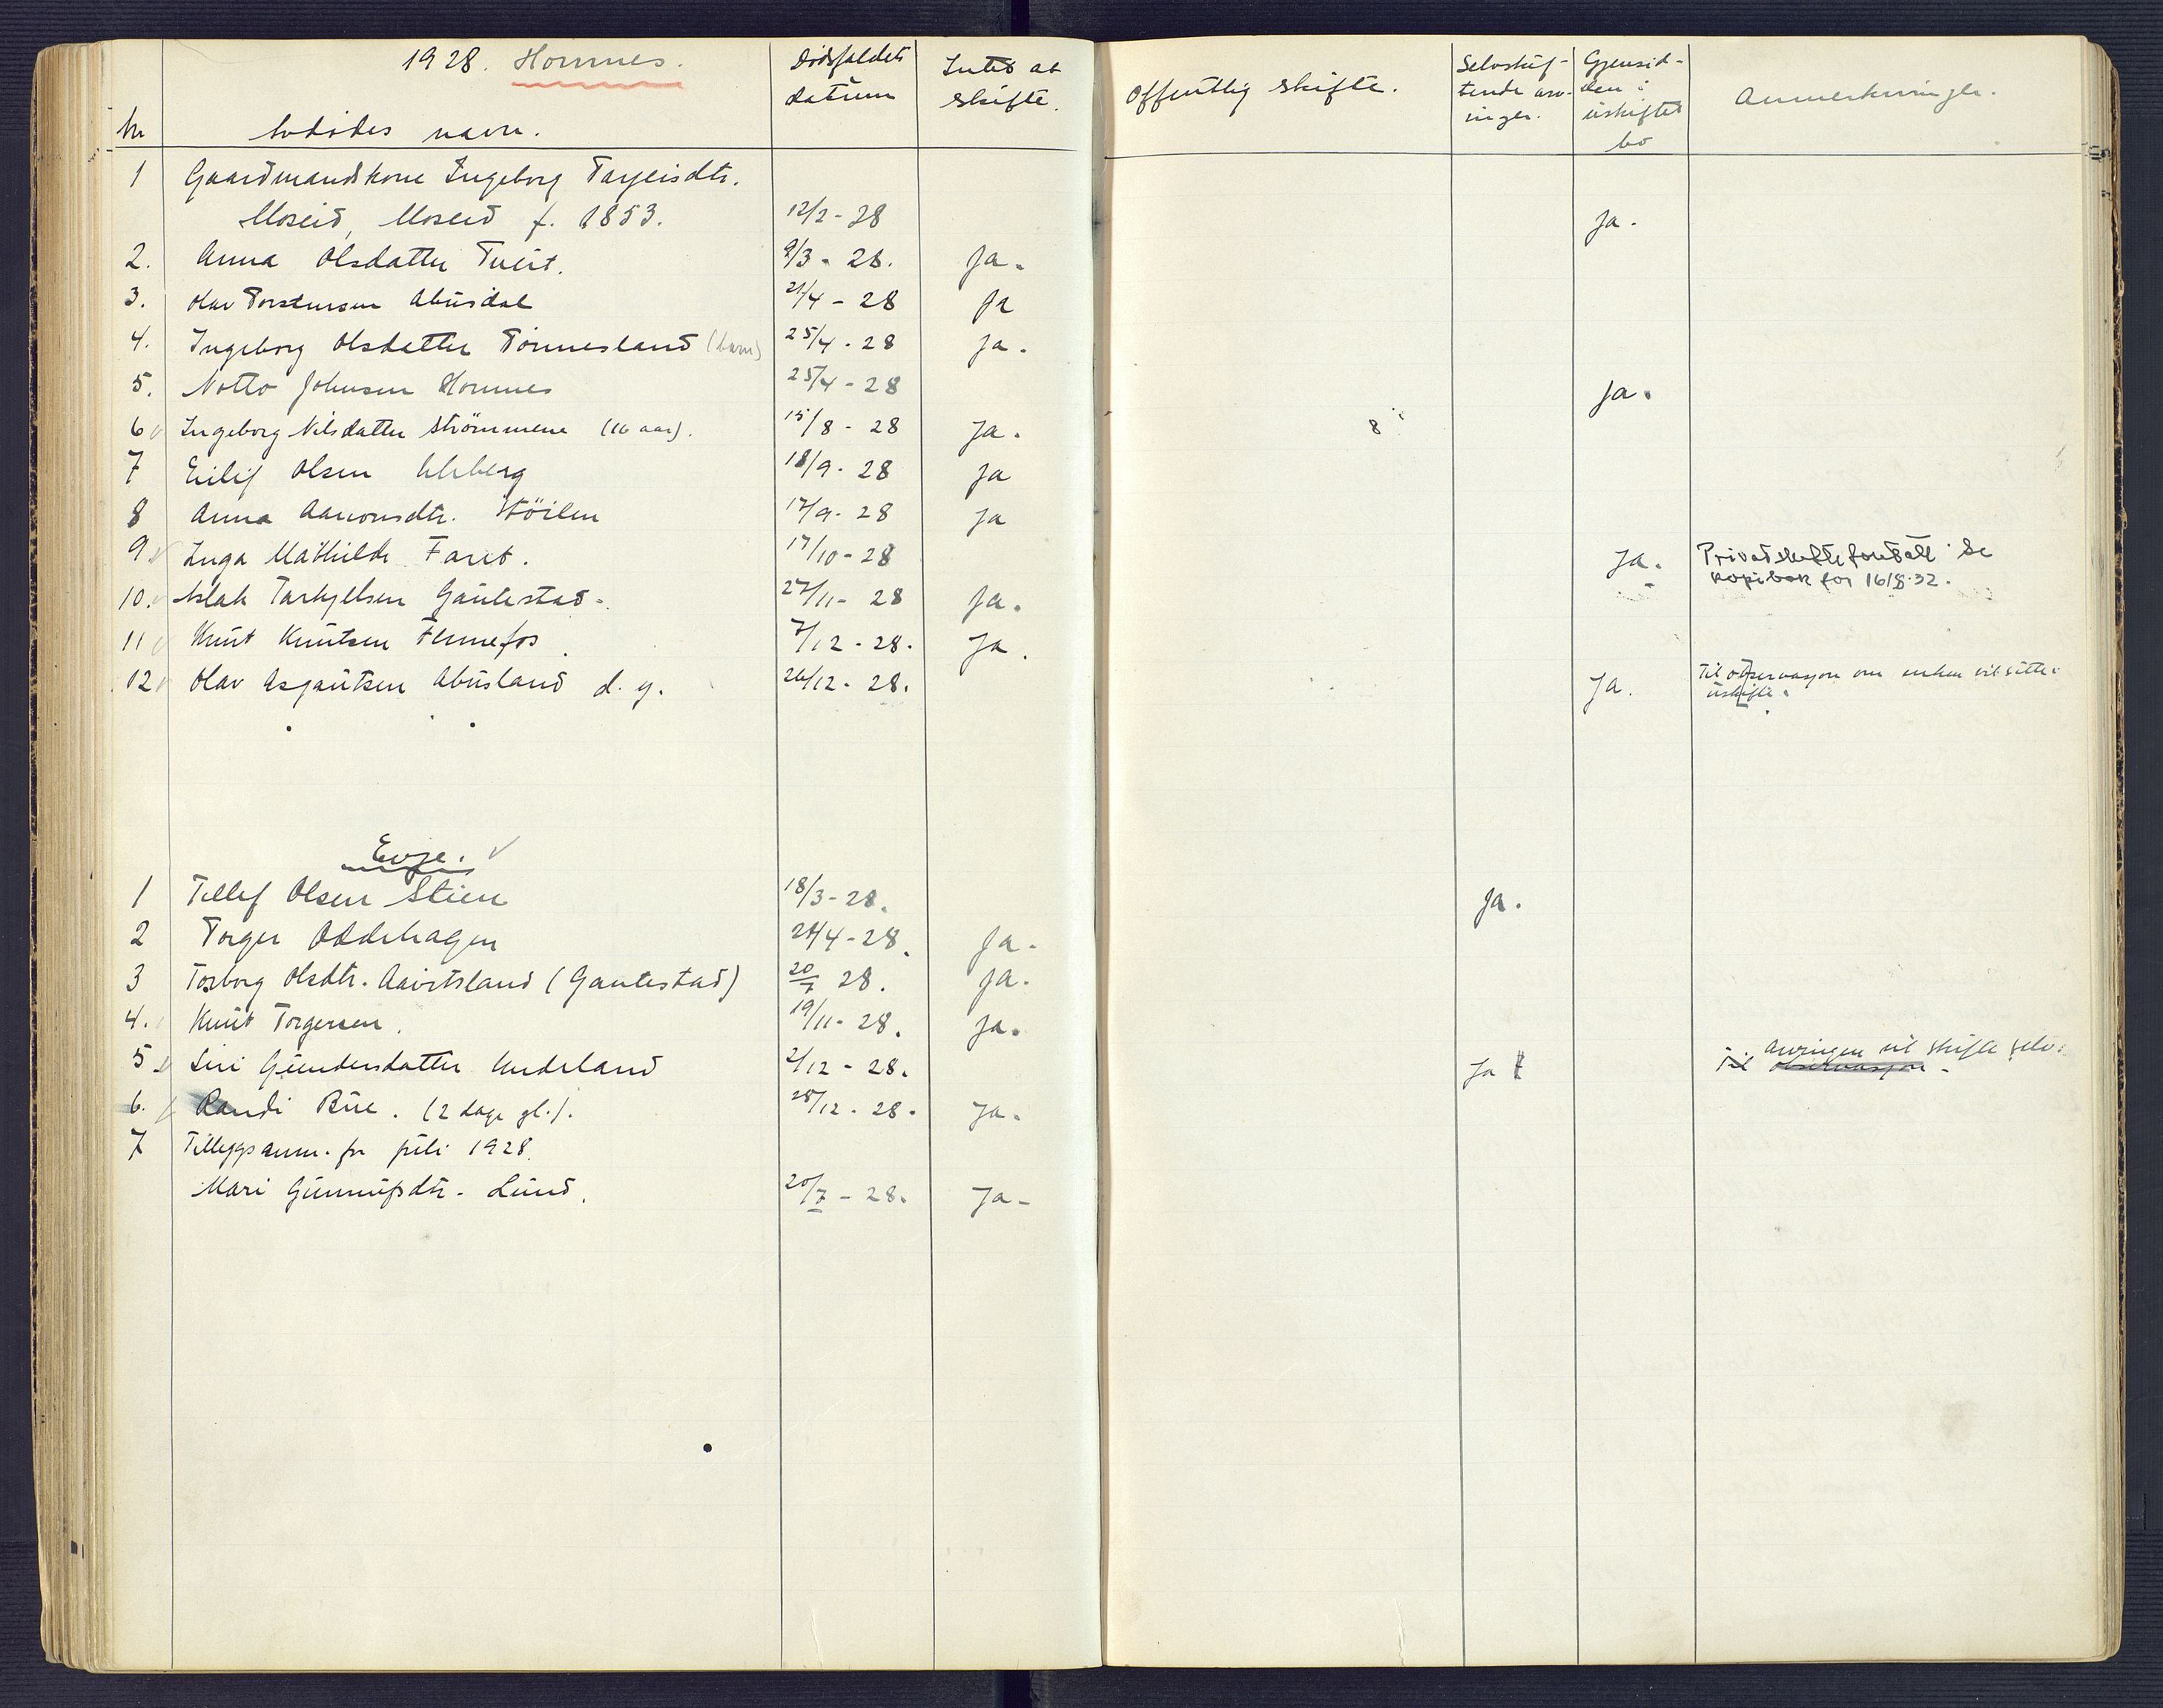 1928. Hornnes.
Nr
Avdødes navn.
Dødsfaldets datum
Intet at skifte.
Offentlig skifte.
Selvskif-
tende arv-
inger.
Gjensid-
den i
uskiftet
bo
Anmerkninger.
1 Gaardmandskone Ingeborg Tarjeisdtr.
Moseid, Moseid f. 1853. 12/2-28 Ja.
2. Anna Olsdatter Tveit. 9/3-28. Ja.
3. Olav Torstensen Abusdal 21/4-28 Ja
4. Ingeborg Olsdatter Tønnesland (barn) 25/4-28 Ja.
5. Notto Johnsen Hornnes 25/4-28 Ja.
6 Ingeborg Nilsdatter Strømmene (16 aar). 15/8-28 Ja. 8
7 Eilif Olsen Uleberg 18/9-28 Ja
8 Anna Aanonsdtr. Støilen 17/9-28 Ja
9 Inga Mathilde Faret. 17/10-28 Ja. Privatskifte foretatt Se
kopibok for 16/8-32.
10. Aslak Tarkjelsen Gautestad. 27/11-28 Ja.
11 Knut Knutsen Fennefos. 7/12-28. Ja.
12 Olav Asgautsen Abusland d. y. 26/12-28. Ja. Til observasjon om enken vil sitte i
uskifte.
Evje.
1 Tellef Olsen Stien 18/3-28. Ja.
2 Torger Oddehagen 24/4-28. Ja.
3 Torborg Olsdtr. Aavitsland (Gautestad) 20/7 28. Ja.
4. Knut Torgersen. 19/11-28. Ja.
5 Siri Gundersdatter Undeland 2/12-28. Ja Arvingen vil skifte selv.
Til observasjon.
6. Randi Bue. (2 dage gl.). 28/12-28. Ja.
7 Tilleggsanm. for juli 1928.
Mari Gunnufsdtr. Lund. 20/7-28. Ja-